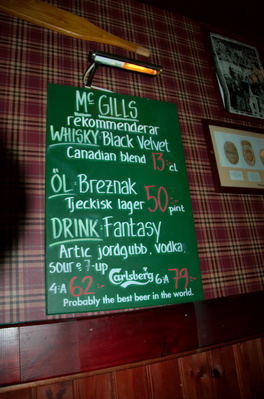 Mc GILLS
rekommenderar
WHISKY-Black Velvet
Canadian blend 13:- cl
ÖL-Breznak
Tjeckisk lager 50:- pint
DRINK-Fantasy
Artic jordgubb, vodka,
sour & 7-up
4:A 62:- Carlsberg 6:A 79:-
Probably the best beer in the world.